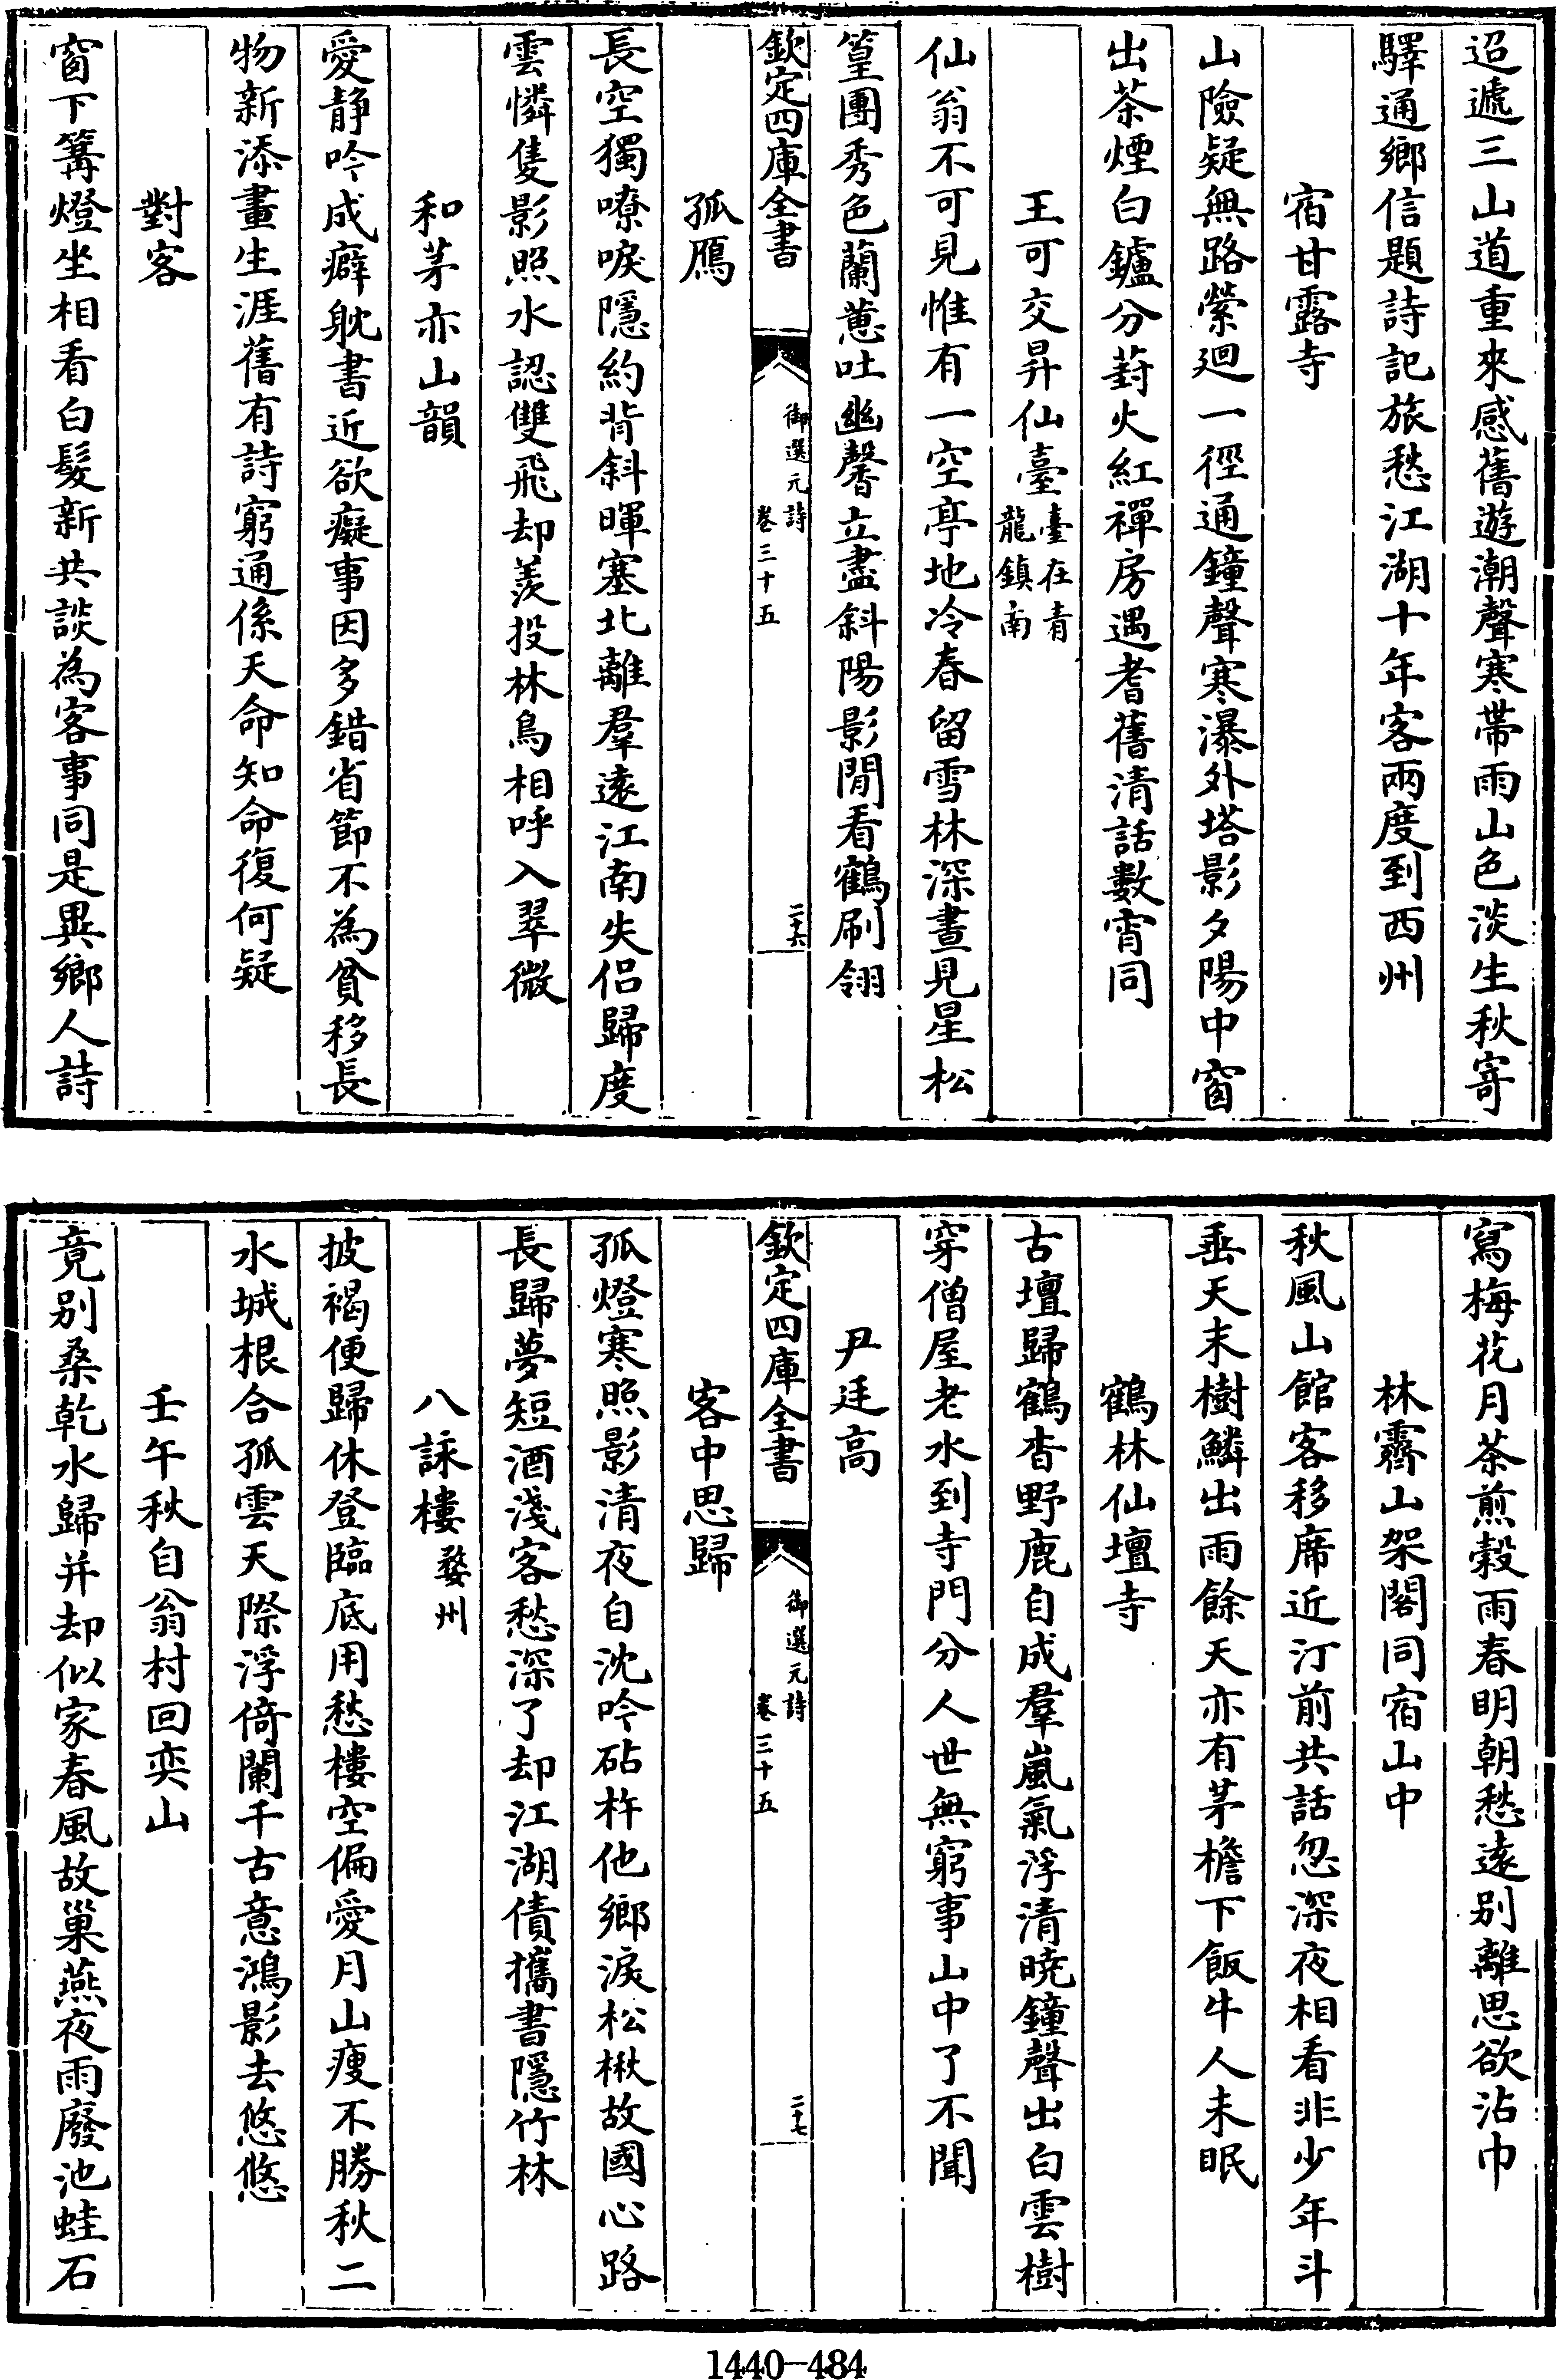 迢遞三山道重來感舊遊潮聲寒帶雨山色淡生秋寄
驛通鄉信題詩記旅愁江湖十年客兩度到西州
宿甘露寺
山險疑無路縈廻一徑通鐘聲寒瀑外塔影夕陽中窗
出茶煙白鑪分葑火紅禪房遇耆舊清話數宵同
王可交昇仙臺臺在青龍鎮南
仙翁不可見惟有一空亭地冷春留雪林深晝見星松
篁團秀色蘭蕙吐幽馨立盡斜陽影閒看鶴刷翎
欽定四庫全書 御選元詩 卷三十五 二十六
孤鴈
長空獨嘹唳隱約背斜暉塞北離羣遠江南失侶歸度
雲憐隻影照水認雙飛却羨投林鳥相呼入翠微
和茅亦山韻
愛静吟成癖躭書近欲癡事因多錯省節不為貧移長
物新添畫生涯舊有詩窮通係天命知命復何疑
對客
窗下篝燈坐相看白髮新共談為客事同是異鄉人詩
寫梅花月茶煎穀雨春明朝愁遠别離思欲沾巾
林霽山架閣同宿山中
秋風山館客移席近汀前共話忽深夜相看非少年斗
垂天末樹鱗出雨餘天亦有茅檐下飯牛人未眠
鶴林仙壇寺
古壇歸鶴杳野鹿自成羣嵐氣浮清曉鐘聲出白雲樹
穿僧屋老水到寺門分人世無窮事山中了不聞
尹廷高
欽定四庫全書 御選元詩 卷三十五 二十七
客中思歸
孤燈寒照影清夜自沈吟砧杵他鄉淚松楸故國心路
長歸夢短酒淺客愁深了却江湖債攜書隱竹林
八詠樓婺州
披褐便歸休登臨底用愁樓空偏愛月山瘦不勝秋二
水城根合孤雲天際浮倚闌千古意鴻影去悠悠
壬午秋自翁村回奕山
竟别桑乾水歸并却似家春風故巢燕夜雨廢池蛙石
1440-484